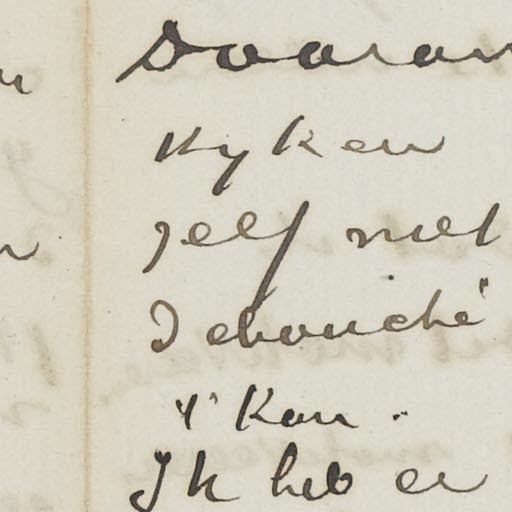 Daarom
Kyken
zelf met
Debouché
't Kan.
Ik heb er